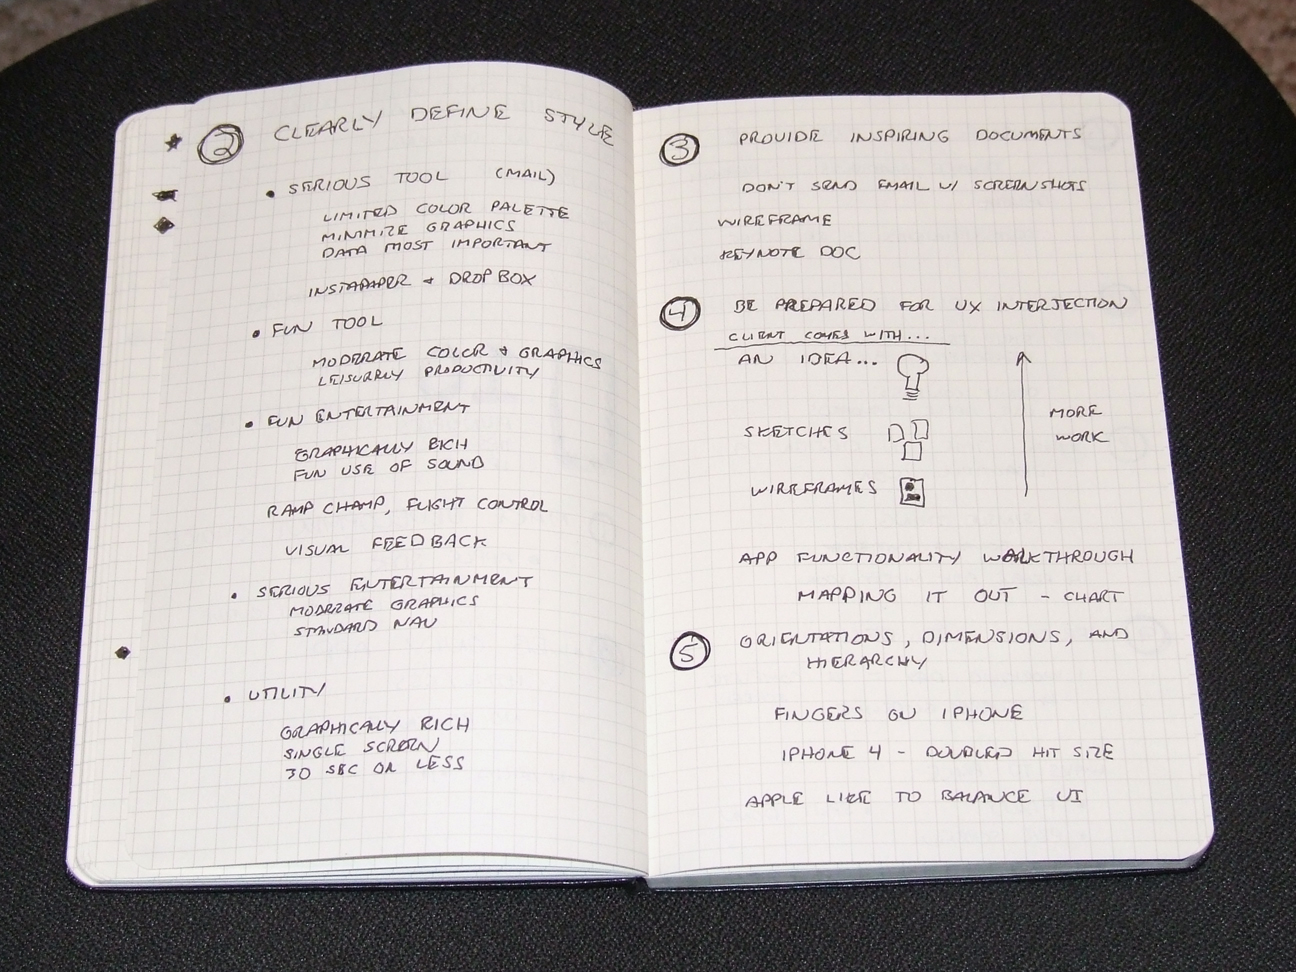 2 CLEARLY DEFINE STYLE
• SERIOUS TOOL (MAIL)
LIMITED COLOR PALETTE
MINIMIZE GRAPHICS
DATA MOST IMPORTANT
INSTAPAPER & DROPBOX
• FUN TOOL
MODERATE COLOR & GRAPHICS
LEISURELY PRODUCTIVITY
• FUN ENTERTAINMENT
GRAPHICALLY RICH
FUN USE OF SOUND
RAMP CHAMP, FLIGHT CONTROL
VISUAL FEEDBACK
• SERIOUS ENTERTAINMENT
MODERATE GRAPHICS
STANDARD NAV
• UTILITY
GRAPHICALLY RICH
SINGLE SCREEN
30 SEC OR LESS
3 PROVIDE INSPIRING DOCUMENTS
DON'T SEND EMAIL W/ SCREENSHOTS
WIREFRAME
KEYNOTE DOC
4 BE PREPARED FOR UX INTERJECTION
CLIENT COMES WITH...
AN IDEA...
SKETCHES
WIREFRAMES
MORE
WORK
APP FUNCTIONALITY WALKTHROUGH
MAPPING IT OUT - CHART
5 ORIENTATIONS, DIMENSIONS, AND
HIERARCHY
FINGERS ON IPHONE
IPHONE 4 - DOUBLED HIT SIZE
APPLE LIKE TO BALANCE UI